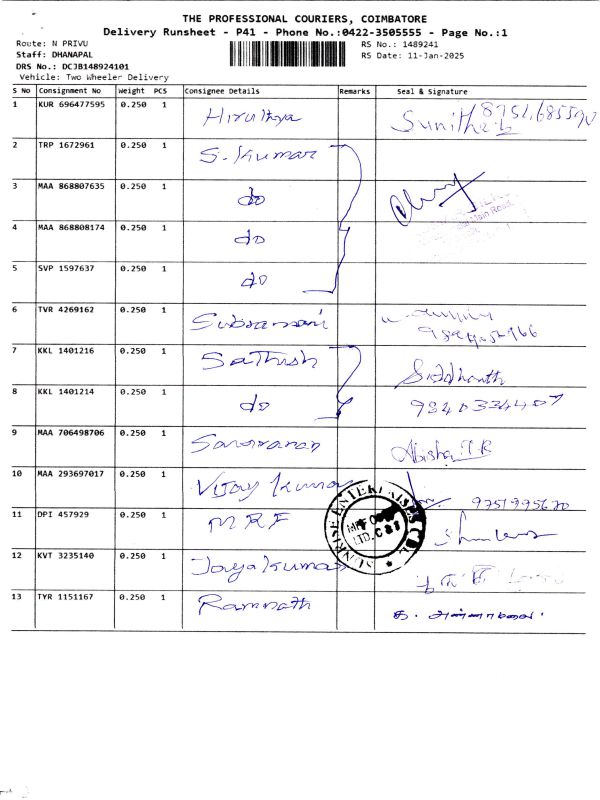 THE PROFESSIONAL COURIERS, COIMBATORE
Delivery Runsheet - P41 - Phone No.:0422-3505555 - Page No.:1
Route: N PRIVU
RS No.: 1489241
Staff: DHANAPAL
RS Date: 11-Jan-2025
DRS No.: DCJB148924101
Vehicle: Two Wheeler Delivery
S No Consignment No Weight PCS Consignee Details Remarks Seal & Signature
1 KUR 696477595 0.250 1 Hiruthya Sunitha
2 TRP 1672961 0.250 1 S. Kumar
3 MAA 868807635 0.250 1 do
Main Road
4 MAA 868808174 0.250 1 do
5 SVP 1597637 0.250 1 do
6 TVR 4269162 0.250 1 Subramani
7 KKL 1401216 0.250 1 Sathish Siddhanth
8 KKL 1401214 0.250 1 do 9840334407
9 MAA 706498706 0.250 1 Saravanan Abisha T R
10 MAA 293697017 0.250 1 Vijay Kumar 9751995670
11 DPI 457929 0.250 1 MRF
SUNRISE ENTERPRISES
12 KVT 3235140 0.250 1 Jayakumar
13 TYR 1151167 0.250 1 Ramnath க. அண்ணாமலை